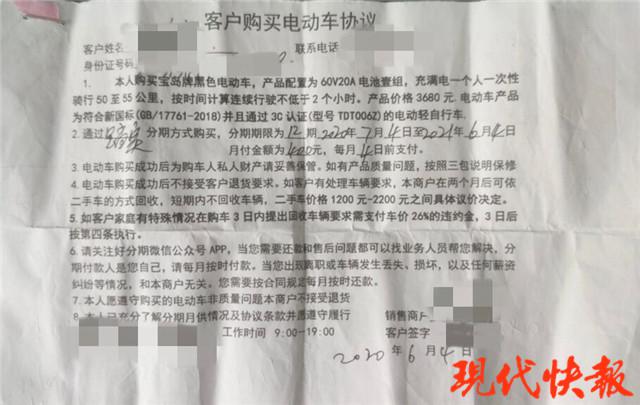 客户购买电动车协议
客户姓名 联系电话
身份证号码
1. 本人购买宝岛牌黑色电动车,产品配置为60V20A电池壹组,充满电一个人一次性
骑行50至55公里,按时间计算连续行驶不低于2个小时。产品价格3680元.电动车产品
为符合新国标(GB/17761-2018)并且通过3C认证(型号TDT006Z)的电动轻自行车.
2.通过 分期方式购买,分期期限为12期2020年7月4日至2021年6月4日
月付金额为400元,每月4日前支付。
3.电动车购买成功后为购车人私人财产请妥善保管。如有产品质量问题,按照三包说明保修
4.电动车购买成功后不接受客户退货要求。如客户有处理车辆要求,本商户在两个月后可依
二手车的方式回收,短期内不回收车辆,二手车价格1200元-2200元之间具体议价决定。
5.如客户家庭有特殊情况在购车3日内提出回收车辆要求需支付车价26%的违约金,3日后
按第四条执行。
6.请关注好分期微信公众号APP,当您需要还款和售后问题都可以找业务人员帮您解决,分
期付款人是您自己,请每月按时付款。当您出现离职或车辆发生丢失、损坏,以及任何薪资
纠纷等情况,和本商户无关。您需要按合同规定每月按时还款。
7.本人愿遵守购买的电动车非质量问题本商户不接受退货
8.本人已充分了解分期月供情况及协议条款并愿遵守履行 销售商户
工作时间 9:00-19:00 客户签字
2020年6月4日
现代快报